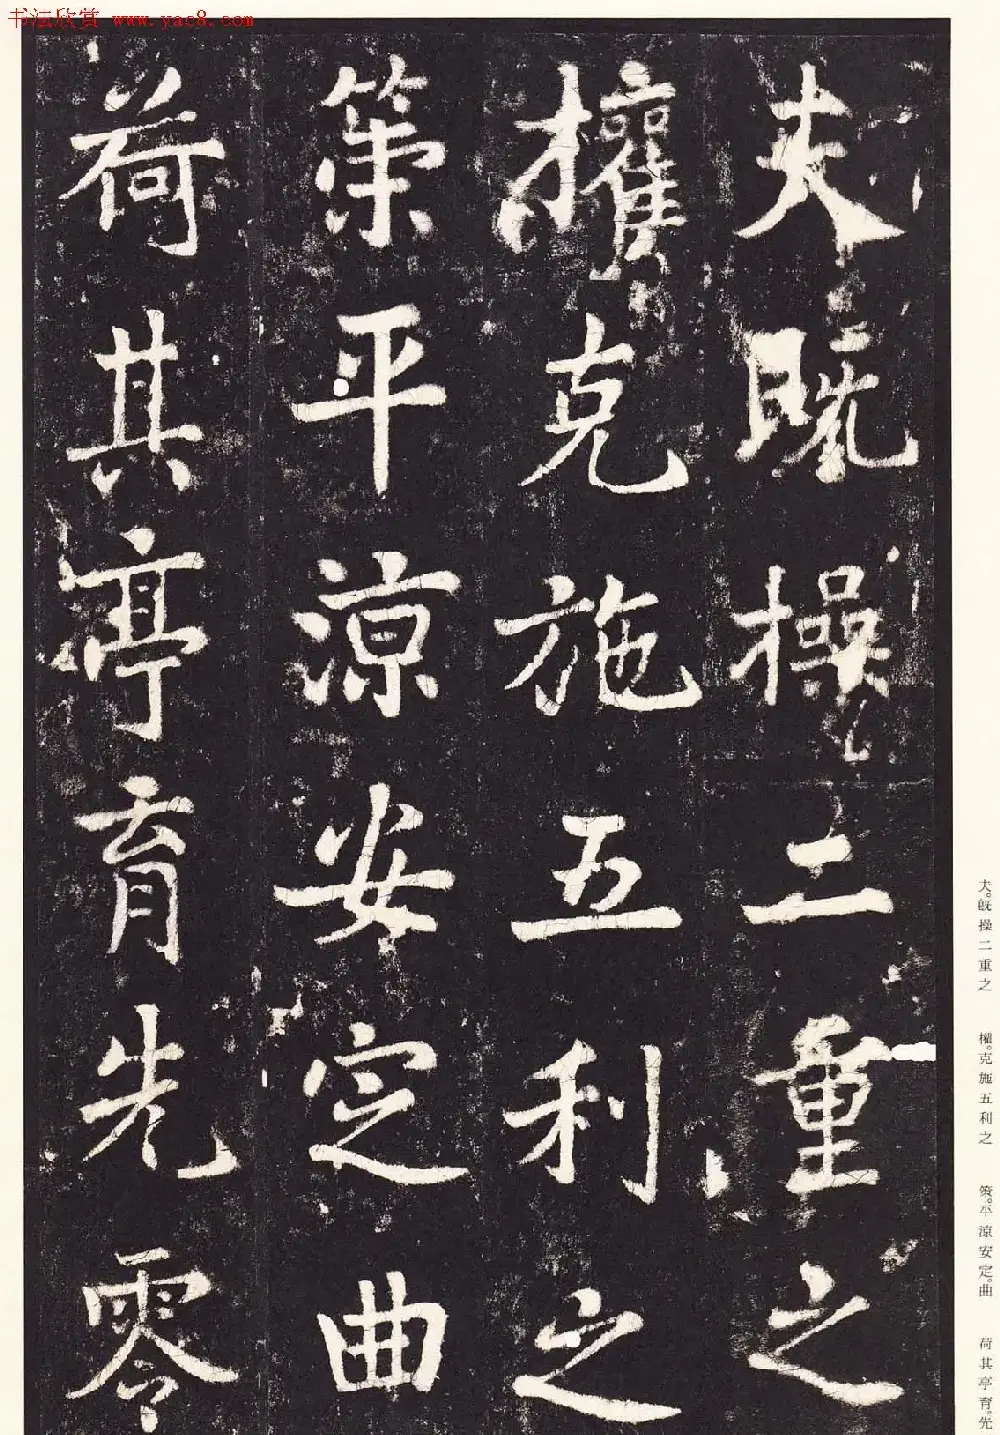 书法欣赏 www.yac8.com
夫既操二重之
權克施五利之
策平涼安定曲
荷其亭育先零
夫。既操二重之
權。克施五利之
策。平涼安定。曲
荷其亭育。先